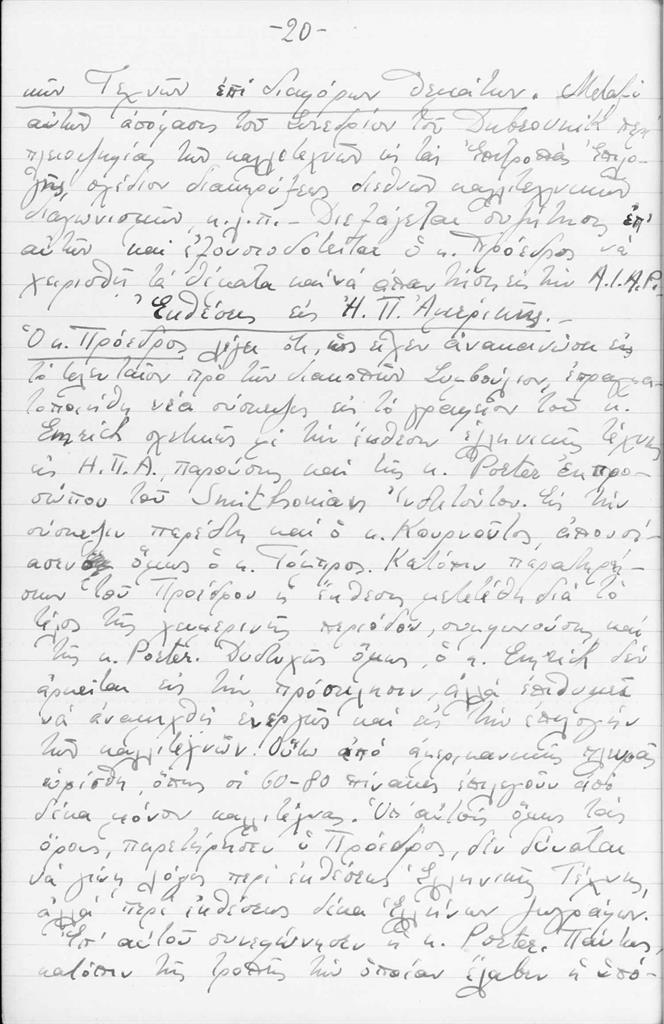 -20-
κῶν Τεχνῶν ἐπὶ διαφόρων θεμάτων. Μεταξὺ
αὐτῶν ἀπόφασις τοῦ Συνεδρίου τοῦ Dubrovnik περὶ
πλειοψηφίας τῶν καλλιτεχνῶν εἰς τὰς Ἐπιτροπὰς Ἐπιλο-
γῆς, σχέδιον διακηρύξεως διεθνῶν καλλιτεχνικῶν
διαγωνισμῶν, κ.λ.π. - Διεξάγεται συζήτησις ἐπ'
αὐτῶν καὶ ἐξουσιοδοτεῖται ὁ κ. Πρόεδρος νὰ
χειρισθῇ τὰ θέματα καὶ νὰ ἀπαντήσῃ εἰς τὴν A.I.A.P.-
Ἐκθέσεις εἰς Η.Π. Ἀμερικῆς.-
Ὁ κ. Πρόεδρος λέγει ὅτι, ὡς εἶχεν ἀνακοινώσει εἰς
τὸ τελευταῖον πρὸ τῶν διακοπῶν Συμβούλιον, ἐπραγμα-
τοποιήθη νέα σύσκεψις εἰς τὸ γραφεῖον τοῦ κ.
Emrich σχετικῶς μὲ τὴν ἔκθεσιν ἑλληνικῆς τέχνης
εἰς Η.Π.Α., παρούσης καὶ τῆς κ. Poster ἐκπρο-
σώπου τοῦ Smithsonian Ἰνστιτούτου. Εἰς τὴν
σύσκεψιν παρέστη καὶ ὁ κ. Κουρνοῦτος, ἀπουσί-
ασεν ὅμως ὁ κ. Τόμπρος. Κατόπιν παρατηρή-
σεων τοῦ Προέδρου ἡ ἔκθεσις μετετέθη διὰ τὸ
τέλος τῆς χειμερινῆς περιόδου, συμφωνούσης καὶ
τῆς κ. Poster. Δυστυχῶς ὅμως, ὁ κ. Emrich δὲν
ἀρκεῖται εἰς τὴν πρόσκλησιν, ἀλλὰ ἐπιθυμεῖ
νὰ ἀναμιχθῇ ἐνεργῶς καὶ εἰς τὴν ἐπιλογὴν
τῶν καλλιτεχνῶν. Οὕτω ἀπὸ ἀμερικανικῆς πλευρᾶς
ὡρίσθη, ὅπως οἱ 60-80 πίνακες ἐπιλεγοῦν ἀπὸ
δέκα μόνον καλλιτέχνας. Ὑπ' αὐτοὺς ὅμως τοὺς
ὅρους, παρετήρησεν ὁ Πρόεδρος, δὲν δύναται
νὰ γίνῃ λόγος περὶ ἐκθέσεως Ἑλληνικῆς Τέχνης,
ἀλλὰ περὶ ἐκθέσεως δέκα Ἑλλήνων ζωγράφων.
Ἐπ' αὐτοῦ συνεφώνησεν ἡ κ. Poster. Πάντως,
κατόπιν τῆς τροπῆς τὴν ὁποίαν ἔλαβεν ἡ ὑπό-